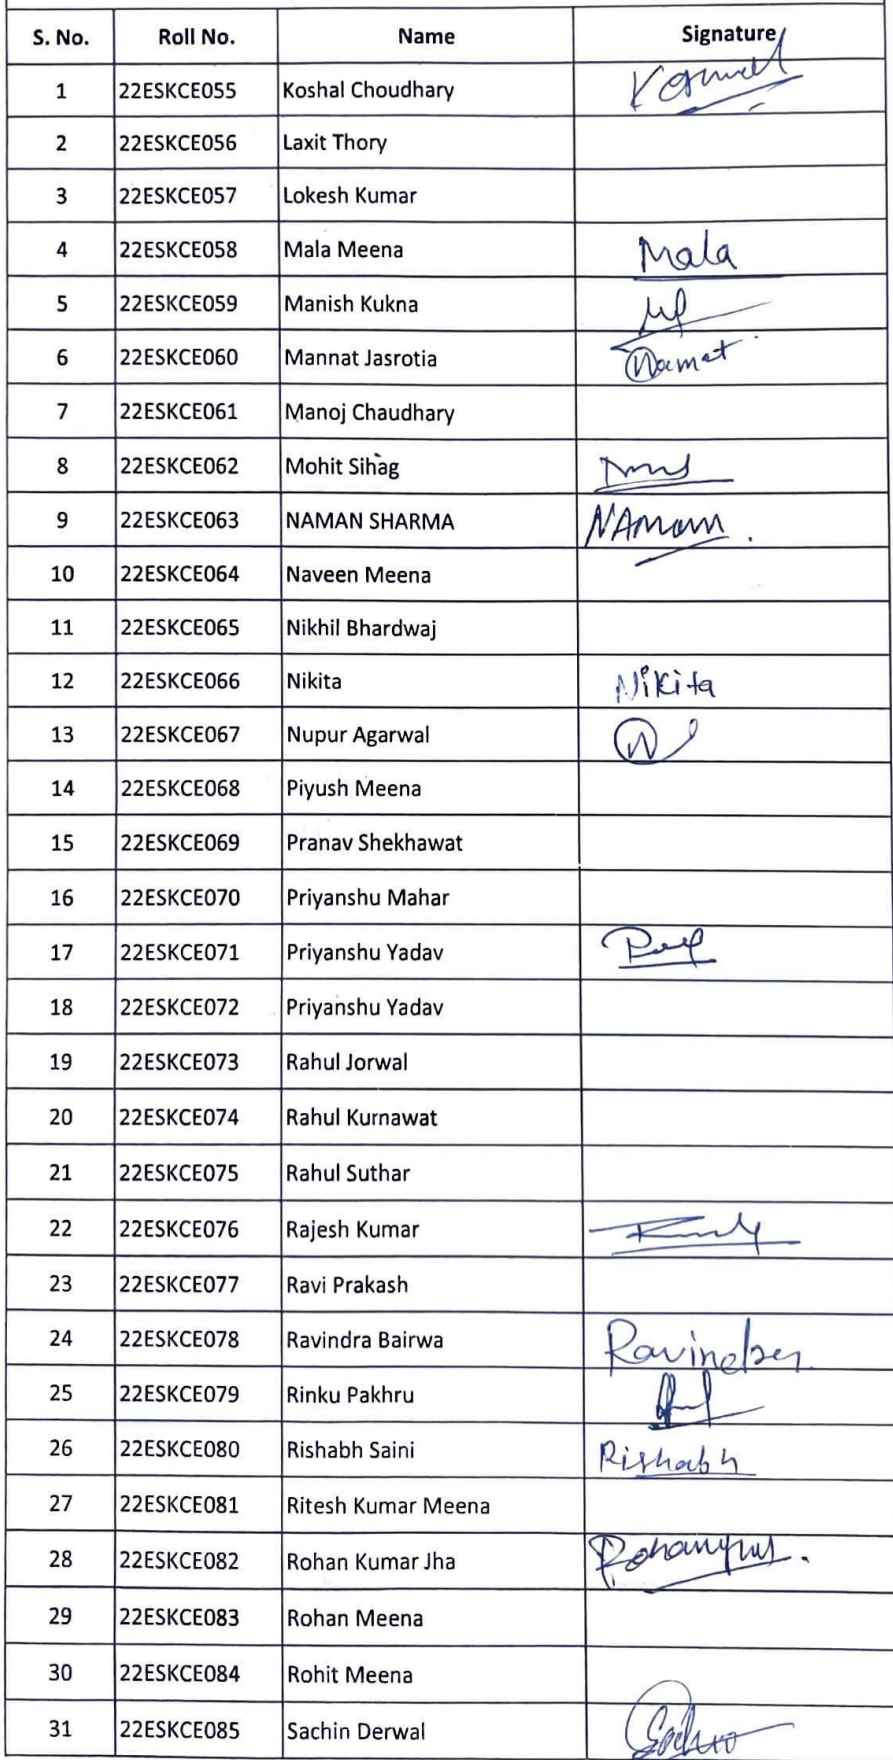 S. No. Roll No. Name Signature
1 22ESKCE055 Koshal Choudhary
2 22ESKCE056 Laxit Thory
3 22ESKCE057 Lokesh Kumar
4 22ESKCE058 Mala Meena Mala
5 22ESKCE059 Manish Kukna
6 22ESKCE060 Mannat Jasrotia
7 22ESKCE061 Manoj Chaudhary
8 22ESKCE062 Mohit Sihag
9 22ESKCE063 NAMAN SHARMA NAmam.
10 22ESKCE064 Naveen Meena
11 22ESKCE065 Nikhil Bhardwaj
12 22ESKCE066 Nikita Nikita
13 22ESKCE067 Nupur Agarwal
14 22ESKCE068 Piyush Meena
15 22ESKCE069 Pranav Shekhawat
16 22ESKCE070 Priyanshu Mahar
17 22ESKCE071 Priyanshu Yadav
18 22ESKCE072 Priyanshu Yadav
19 22ESKCE073 Rahul Jorwal
20 22ESKCE074 Rahul Kurnawat
21 22ESKCE075 Rahul Suthar
22 22ESKCE076 Rajesh Kumar
23 22ESKCE077 Ravi Prakash
24 22ESKCE078 Ravindra Bairwa
25 22ESKCE079 Rinku Pakhru
26 22ESKCE080 Rishabh Saini Rishabh
27 22ESKCE081 Ritesh Kumar Meena
28 22ESKCE082 Rohan Kumar Jha
29 22ESKCE083 Rohan Meena
30 22ESKCE084 Rohit Meena
31 22ESKCE085 Sachin Derwal